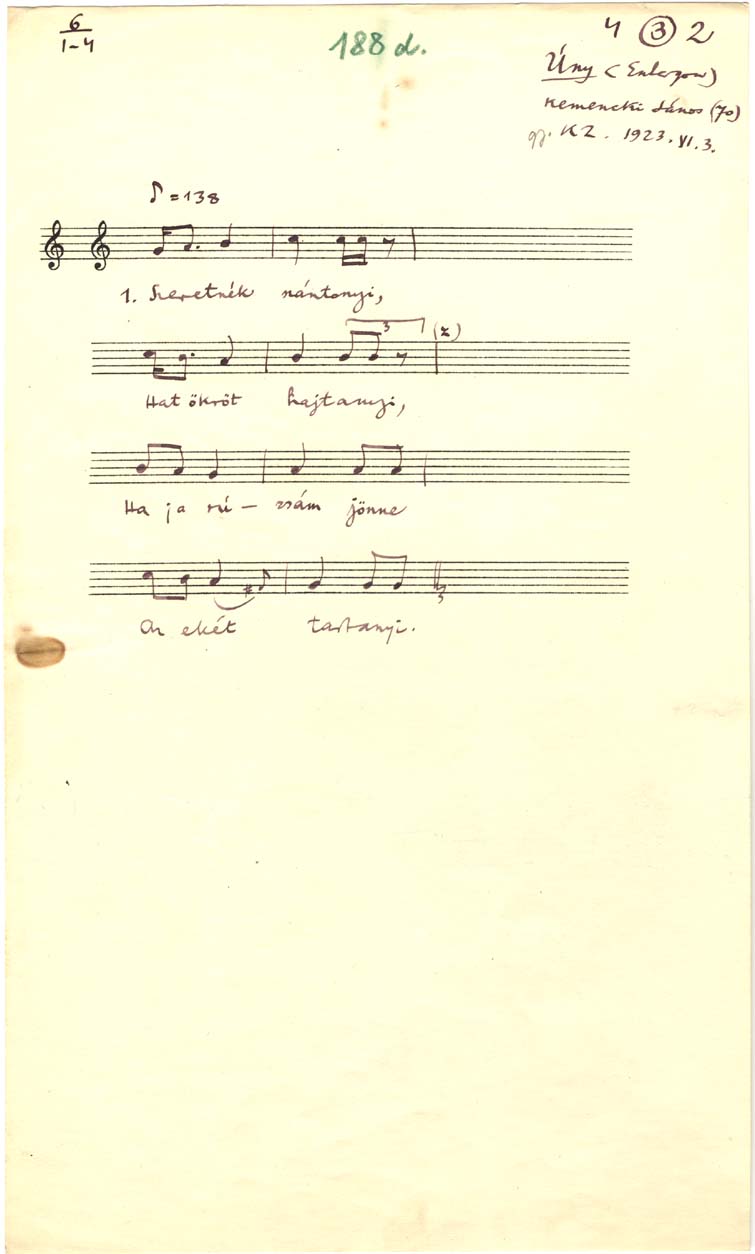 6
1-4
188 d.
4 3 2
Úny (Esztergom)
Kemencki János (70)
gy. KZ. 1923. VI. 3.
♪ = 138
1. Szeretnék szántanyi,
3 (z)
Hat ökröt hajtanyi,
Ha ja rú - zsám jönne
Az ekét tartanyi.